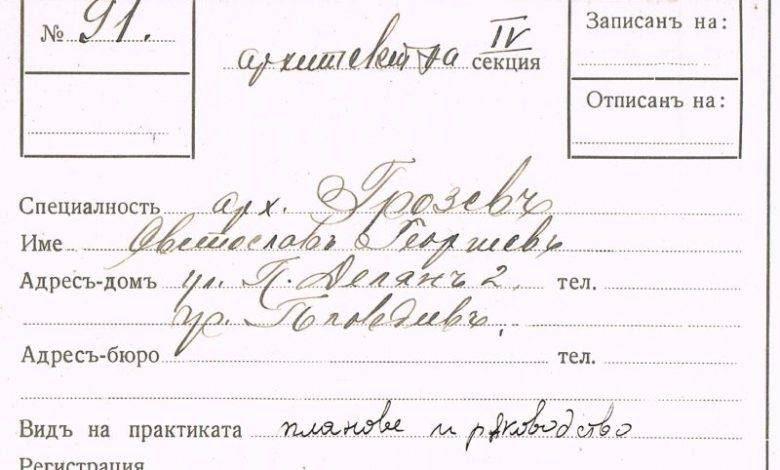 № 91.
архитектура IV секция
Записанъ на:
Отписанъ на:
Специалность арх. Грозевъ
Име Светославъ Георгиевъ
Адресъ-домъ ул. П. Делянъ 2. тел.
гр. Пловдивъ.
Адресъ-бюро тел.
Видъ на практиката планове и рѫководство
Регистрация